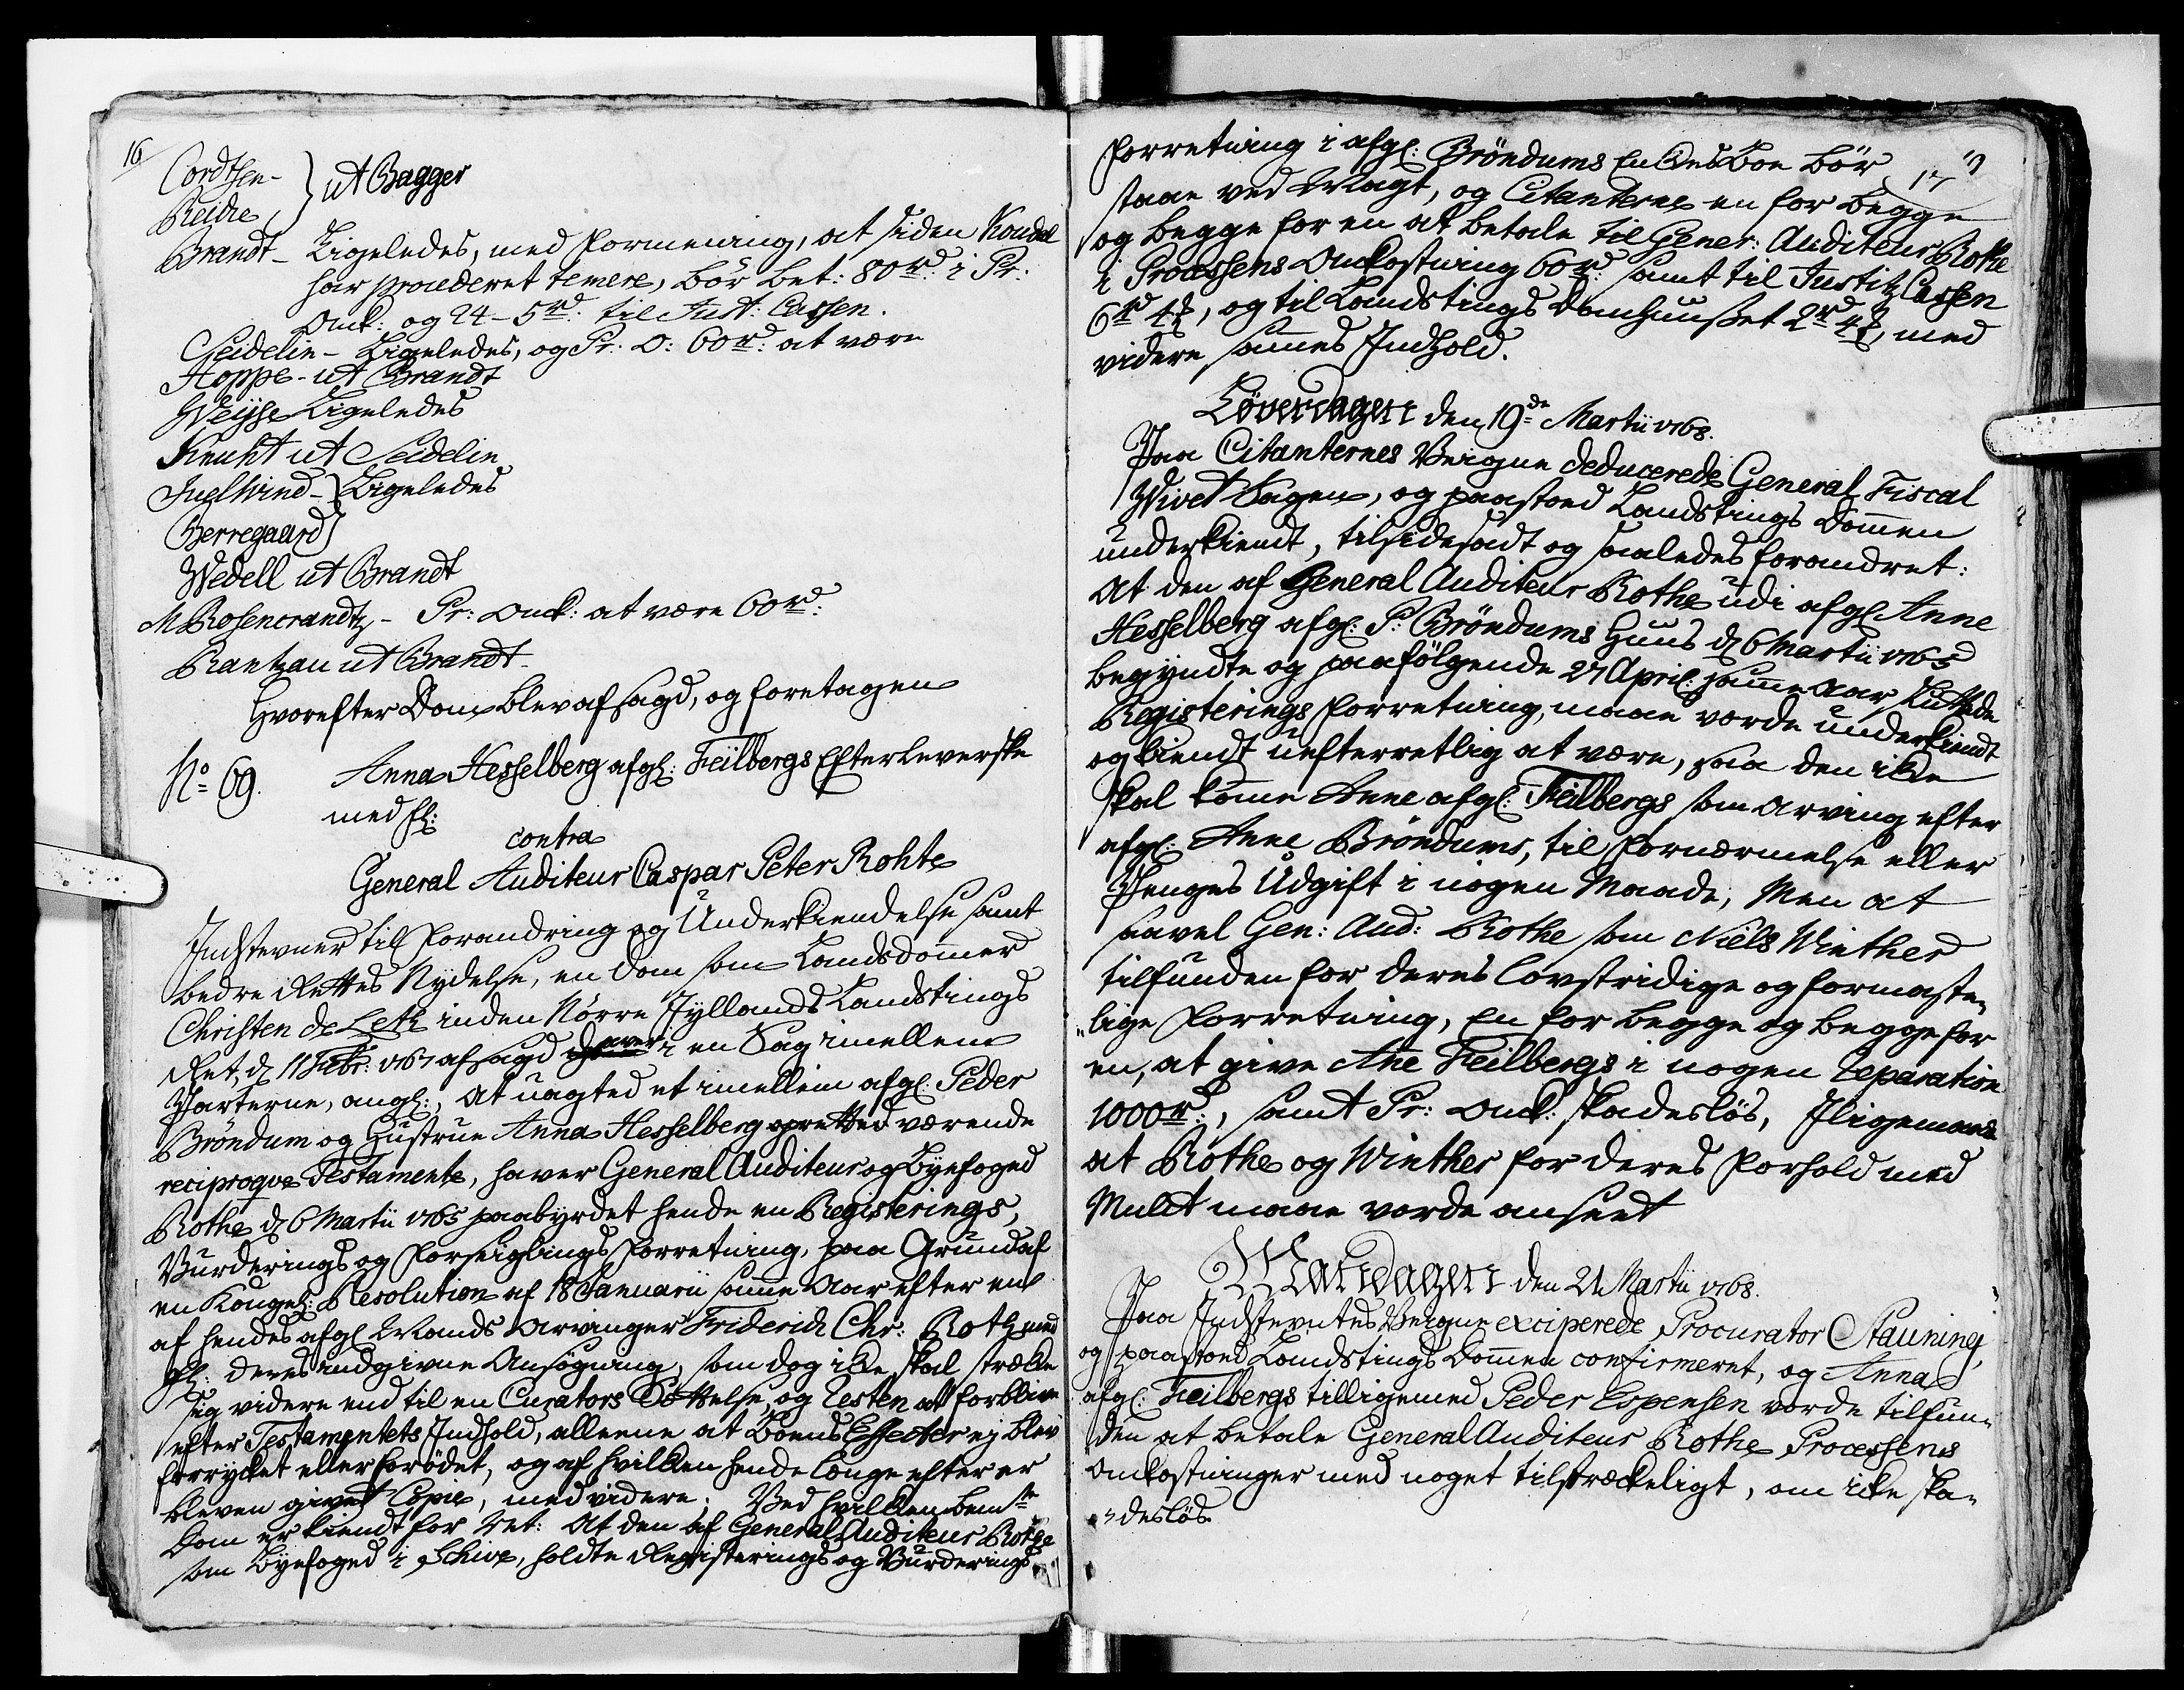 16
Cordtsen-
Reiche } ut Bagger
Brandt- Ligeledes, med Formening, at siden Koudal
har procederet temere, bör bet: 80rd: i Pr:
Omk: og 24-5rd: til Just: Cassen.
Seidelin- Ligeledes, og Pr: O: 60rd: at være
Hoppe- ut Brandt
Weyse Ligeledes
Knuht ut Seidelin
Juelwind- } Ligeledes
Berregaard
Wedell ut Brandt
M Rosencrandtz- Pr: Omk: at være 60rd:
Rantzau ut Brandt
Hvorefter Dom blev afsagd, og foretagen
No 69. Anna Hesselberg afgl: Feilbergs Efterleverske
med fl:
contra
General Auditeur Caspar Peter Rohte
Indstevner til Forandring og Underkiendelse samt
bedre Rettes Nydelse, en Dom som Landsdommer
Christen de Leth inden Nørre Jyllands Landstings
Ret, d 11 Febr: 1767 afsagd i en Sag imellem
Parterne, angl:, At uagted et imellem afgl: Peder
Bröndum og Hustrue Anna Hesselberg opretted værende
reciproqve Testamente, haver General Auditeur og Byefoged
Rothe d 6 Martii 1765 paabyrdet hende en Registerings,
Vurderings og Forseiglings Forretning, paa Grund af
en Kongel: Resolution af 18 Januarii samme Aar efter en
af hendes afgl Mands Arvinger Friderich Chr: Roth med
fl: deres indgivne Ansøgning, som dog ikke skal strække
sig videre end til en Curators Sættelse, og Resten at forblive
efter Testamentets Indhold, alleene at Boens Effecter ej blev
forrycket eller forödet, og af hvilken hende længe efter er
bleven givet Copie, med videre. Ved hvilken bemte
Dom er kiendt for Ret: At den af General Auditeur Rothe
som Byefoged i Schive, holdte Registerings og Vurderings
17
Forretning i afgl: Bröndums Enkes Boe bör
staae ved Magt, og Citanterne en for begge
og begge for en at betale til Gener: Auditeur Rothe
i Processens Omkostning 60rd: samt til Justitz Cassen
6rd 4ß, og til Landstings Domhuuset 2rd 4ß, med
videre sammes Indhold.
Löverdagen den 19de Martii 1768.
Paa Citanternes Veigne deducerede General Fiscal
Wivet Sagen, og paastoed Landstings Dommen
underkiendt, tilsidesadt og saaledes forandret:
At den af General Auditeur Rothe udi afgl Anne
Hesselberg afgl: P: Bröndums Huus d 6 Martii 1765
begyndte og paafölgende 27 April samme Aar sluttede
Registerings Forretning, maae vorde underkiendt
og kiendt uefterretlig at være, saa den ikke
skal komme Anne afgl: Feilbergs som Arving efter
afgl: Anne Bröndums, til Fornærmelse eller
Penges Udgift i nogen Maade, Men at
saavel Gen: Aud: Rothe som Niels Winther
tilfunden for deres lovstridige og formaste-
lige Forretning, En for begge og begge for
en, at give Ane Feilbergs i nogen Reparation
1000rd:, samt Pr: Omk: skadeslös, Iligemaade
at Rothe og Winther for deres Forhold med
Mulct maae vorde anseet
Mandagen den 21 Martii 1768.
Paa Indstevntes Veigne exciperede Procurator Stauning,
og paastoed Landstings Dommen confirmeret, og Anna
afgl: Feilbergs tilligemed Peder Espensen vorde tilfun-
den at betale General Auditeur Rothe Processens
Omkostninger med noget tilstrækeligt, om icke ska-
deslös.